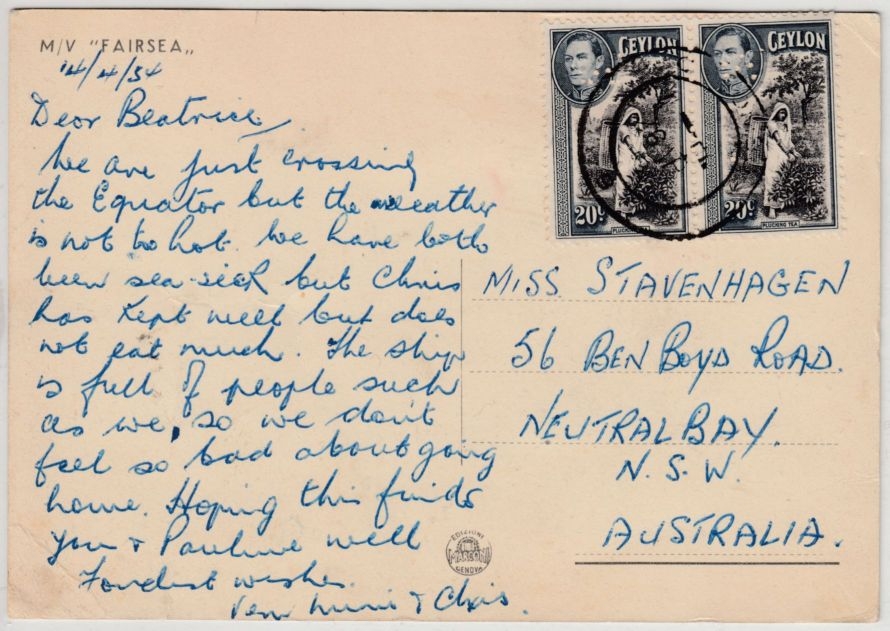 M/V "FAIRSEA„
14/4/54
Dear Beatrice,
We are just crossing
the Equator but the weather
is not too hot. We have both
been sea-sick but Chris
has kept well but does
not eat much. The ship
is full of people such
as we, so we don't
feel so bad about going
home. Hoping this finds
you & Pauline well
Fondest wishes.
& Chris.
CEYLON
20c
PLUCKING TEA
CEYLON
20c
PLUCKING TEA
MISS. STAVENHAGEN
56 BEN BOYD ROAD.
NEUTRAL BAY.
N.S.W.
AUSTRALIA.
EDIZIONI
MARCONI
GENOVA